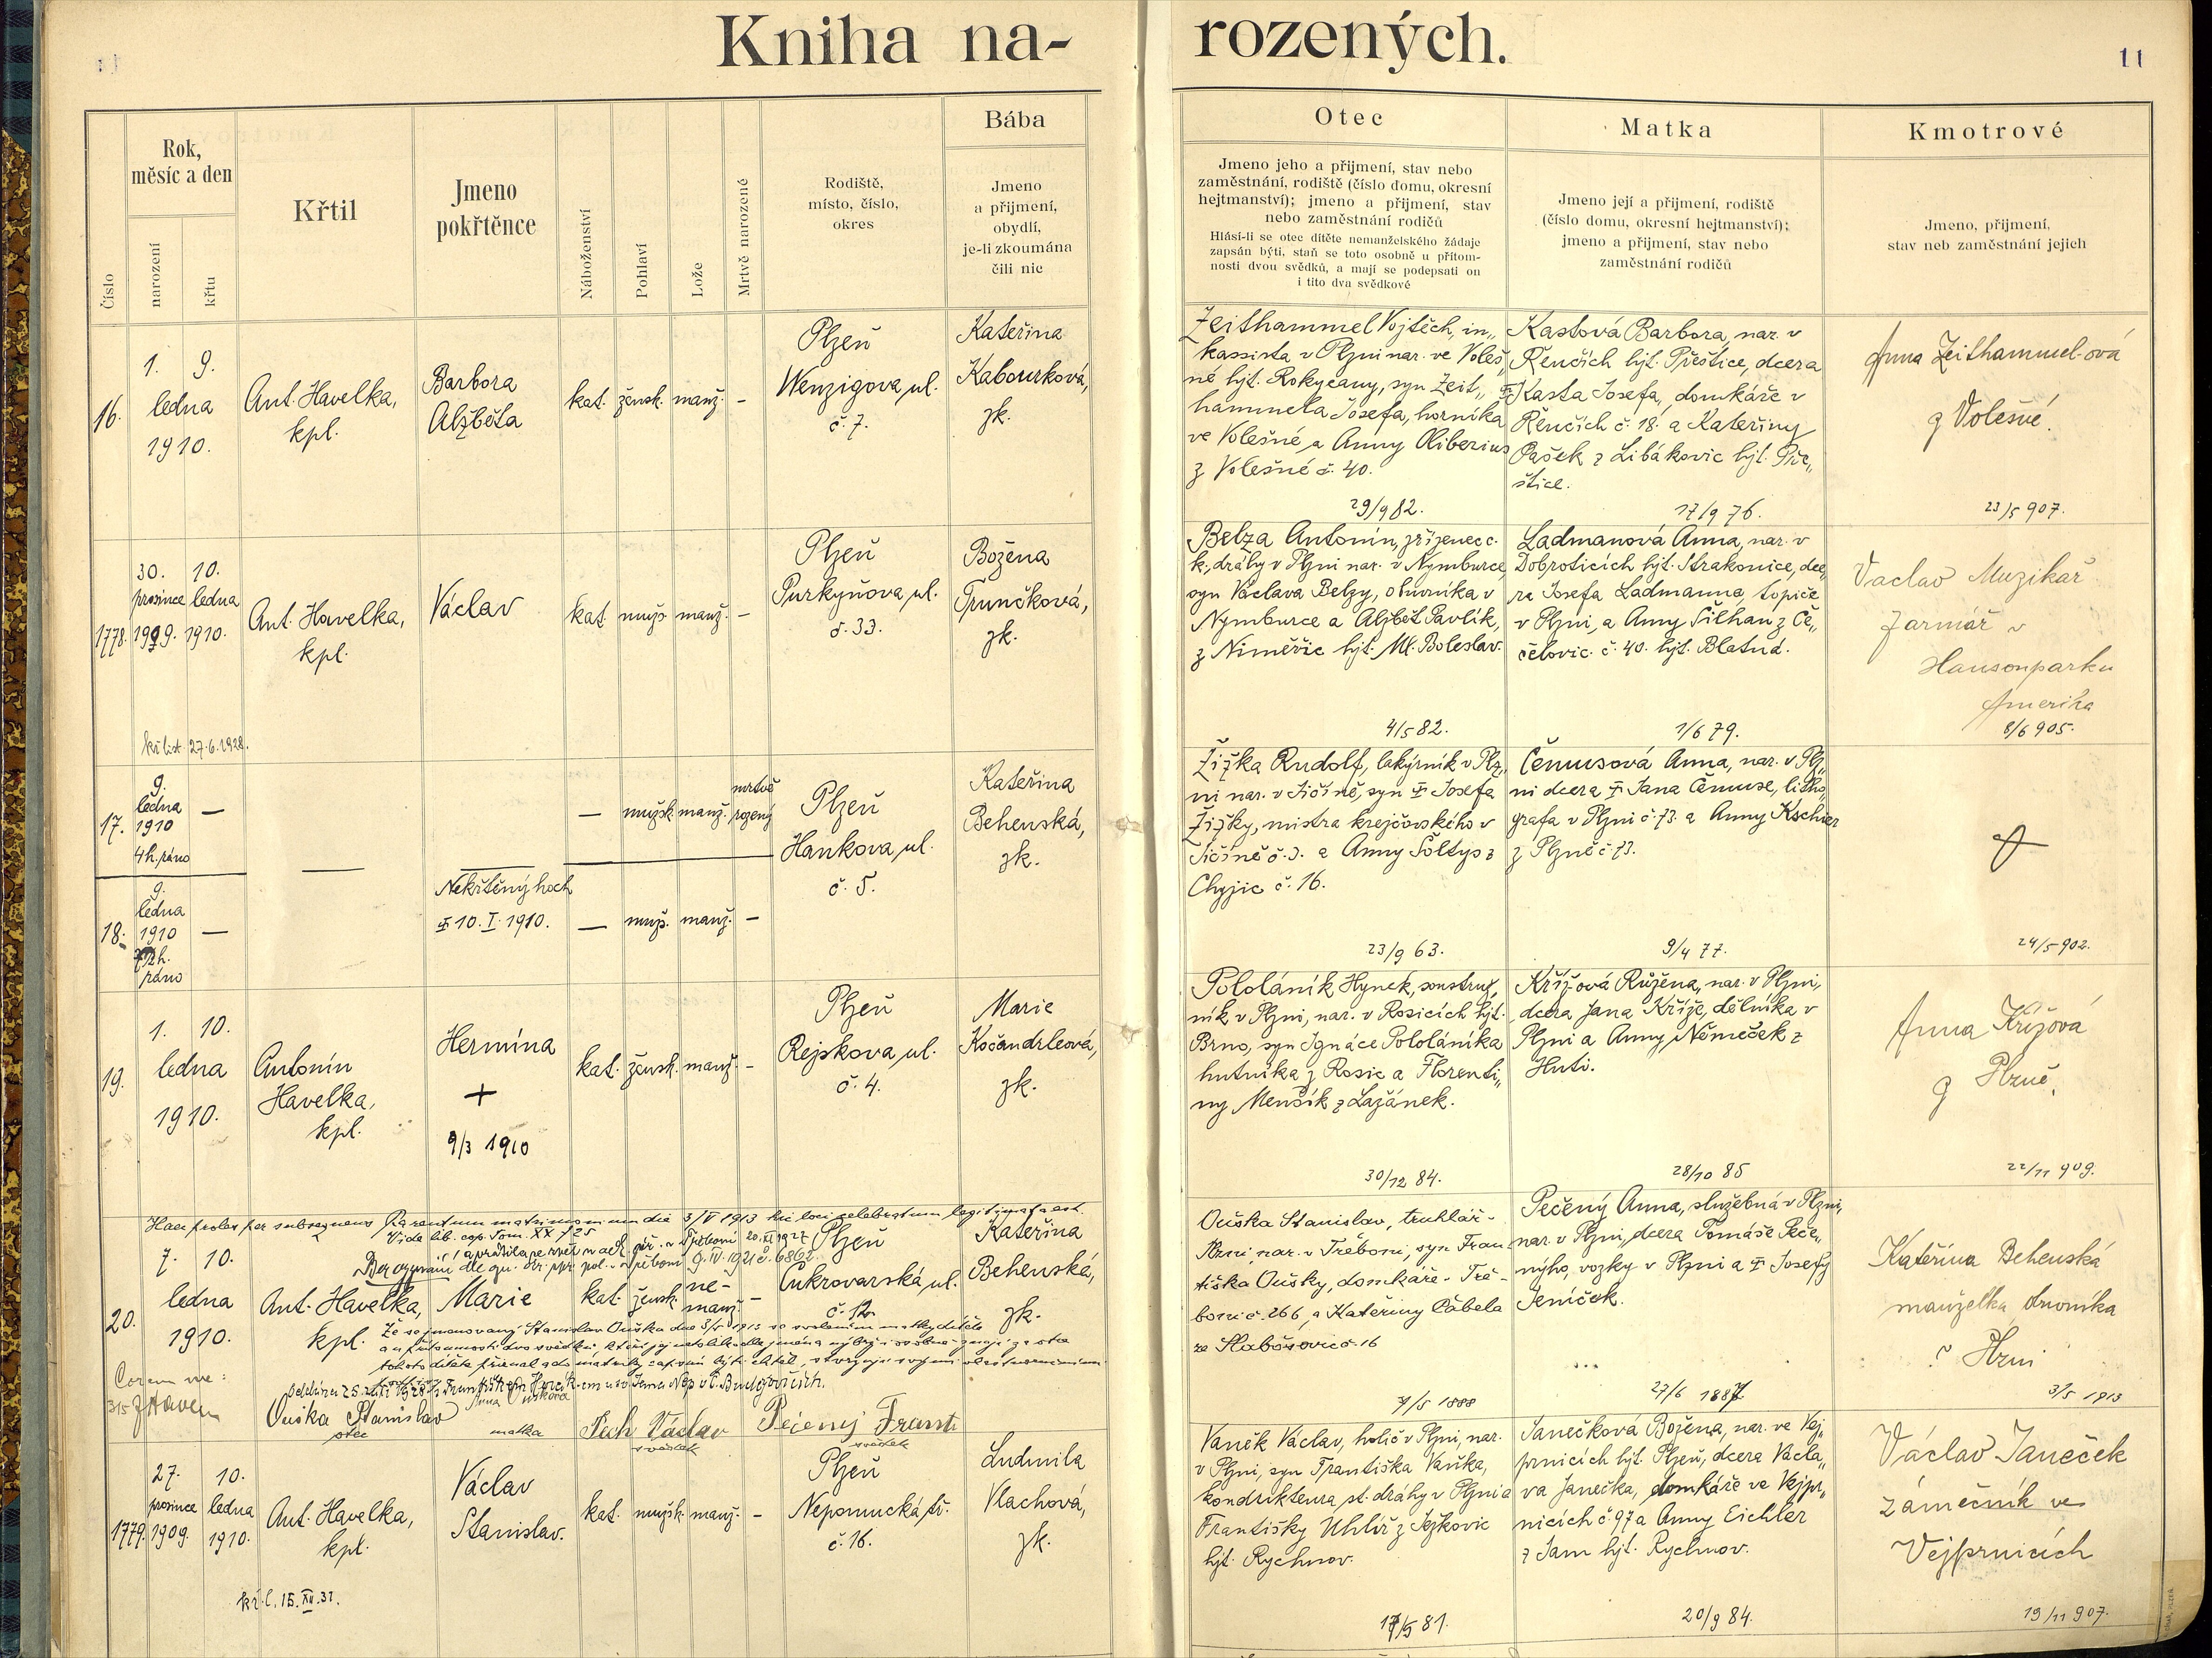 Kniha na-
rozených.
11
Číslo
Rok,
měsíc a den
narození
křtu
Křtil
Jmeno
pokřtěnce
Náboženství
Pohlaví
Lože
Mrtvě narozené
Rodiště,
místo, číslo,
okres
Bába
Jmeno
a přijmení,
obydlí,
je-li zkoumána
čili nic
Otec
Jmeno jeho a přijmení, stav nebo
zaměstnání, rodiště (číslo domu, okresní
hejtmanství); jmeno a přijmení, stav
nebo zaměstnání rodičů
Hlásí-li se otec dítěte nemanželského žádaje
zapsán býti, staň se toto osobně u přítom-
nosti dvou svědků, a mají se podepsati on
i tito dva svědkové
Matka
Jmeno její a přijmení, rodiště
(číslo domu, okresní hejtmanství);
jmeno a přijmení, stav nebo
zaměstnání rodičů
Kmotrové
Jmeno, přijmení,
stav neb zaměstnání jejich
16.
1. 9.
ledna
1910.
Ant. Havelka,
kpl.
Barbora
Alžběta
kat. žensk. manž. -
Plzeň
Wenzigova ul.
č. 7.
Kateřina
Kabourková,
zk.
Zeithammel Vojtěch, in„
kassista v Plzni nar. ve Voleš„
né hjt. Rokycany, syn Zeit„
hammela Josefa, horníka
ve Volešné a Anny Oliberius
z Volešné č. 40.
29/9 82.
Kastová Barbora, nar. v
Řenčích hjt. Přeštice, dcera
Kasta Josefa, domkáře v
Řenčích č. 18. a Kateřiny
Pašek z Libákovic hjt. Pře„
štice.
17/9 76.
Anna Zeithammel-ová
z Volešné.
23/5 907.
1778.
30. 10.
prosince ledna
1909. 1910.
křlist. 27.6.1928.
Ant. Havelka,
kpl.
Václav
kat. muž. manž. -
Plzeň
Purkyňova ul.
č. 33.
Božena
Trunčková,
zk.
Belza Antonín, zřízenec c.
k. dráhy v Plzni nar. v Nymburce,
syn Václava Belzy, obuvníka v
Nymburce a Alžběty Pavlík,
z Niměřic hjt. Ml. Boleslav.
4/5 82.
Ladmanová Anna, nar. v
Dobroticích hjt. Strakonice, dce„
ra Josefa Ladmanna, topiče
v Plzni, a Anny Šilhan z Če„
čelovic č. 40. hjt. Blatná.
1/6 79.
Vaclav Muzikař
farmář v
Hansonparku
Amerika
8/6 905.
17.
9.
ledna
1910
4h. ráno
—
— mužsk. manž. mrtvě
rozený
Plzeň
Hankova ul.
č. 5.
Kateřina
Behenská,
zk.
18.
9.
ledna
1910
ráno
—
Nekřtěný hoch
10. I. 1910.
— muž. manž. -
Žižka Rudolf, lakýrník v Plz„
ni nar. v Jičíně, syn Josefa
Žižky, mistra krejčovského v
Jičíně č. 3. a Anny Šoltys z
Chyjic č. 16.
23/9 63.
Čemusová Anna, nar. v Plz„
ni dcera Jana Čemuse, litho„
grafa v Plzni č. 73. a Anny Kschier
z Plzně č. 73.
9/4 77.
24/5 902.
19.
1. 10.
ledna
1910.
Antonín
Havelka,
kpl.
Hermína
+
9/3 1910
kat. žensk. manž. -
Plzeň
Rejskova ul.
č. 4.
Marie
Kočandrleová,
zk.
Pololáník Hynek, soustruž„
ník v Plzni, nar. v Rosicích hjt.
Brno, syn Ignáce Pololáníka
hutníka z Rosic a Florenti„
ny Menšík z Lažánek.
30/12 84.
Křížová Růžena, nar. v Plzni,
dcera Jana Kříže, dělníka v
Plzni a Anny Němeček z
Huti.
28/10 85
Anna Křížová
z Plzně.
22/11 909.
Haec proles per subsequens Parentum matrimonium die 3/V 1913 hic loci celebratum legitimata est.
Vide lib. cop. Tom. XX 725
20.
7. 10.
ledna
1910.
Ant. Havelka,
kpl.
Marie
kat. žensk. ne-
manž. -
Plzeň
Cukrovarská ul.
č. 12.
Kateřina
Behenská,
zk.
Že se jmenovaný Stanislav Ouška dne 3/5 1913 se svolením matky dítěte
Coram me:
3/5
Ouška Stanislav
otec
matka
Pech Václav
svědek
Pečený Frant
svědek
Ouška Stanislav, truhlář -
Plzni, nar. v Třeboni, syn Fran
tiška Oušky, domkáře - Tře-
boni č. 266, a Kateřiny Cábela
ze Slabošovic č. 16
7/5 1888
Pečený Anna, služebná v Plzni,
nar. v Plzni, dcera Tomáše Peče„
nýho, vozky v Plzni a Josefy
Jeníček.
27/6 1887
Kateřina Behenská
manželka
Plzni
3/5 1913
1779.
27. 10.
prosince ledna
1909. 1910.
kř. l. 15. XII. 31.
Ant. Havelka,
kpl.
Václav
Stanislav.
kat. mužsk. manž. -
Plzeň
Nepomucká tř.
č. 16.
Ludmila
Vlachová,
zk.
Vaněk Václav, holič v Plzni, nar.
v Plzni, syn Františka Vaňka,
kondukteura st. dráhy v Plzni a
Františky Uhlíř z Ježkovic
hjt. Rychnov.
17/5 81.
Janečková Božena, nar. ve Vej„
prnicích hjt. Plzeň, dcera Václa„
va Janečka, domkáře ve Vejpr„
nicích č. 97 a Anny Eichler
z Jam hjt. Rychnov.
20/9 84.
Václav Janeček
zámečník ve
Vejprnicích
19/11 907.